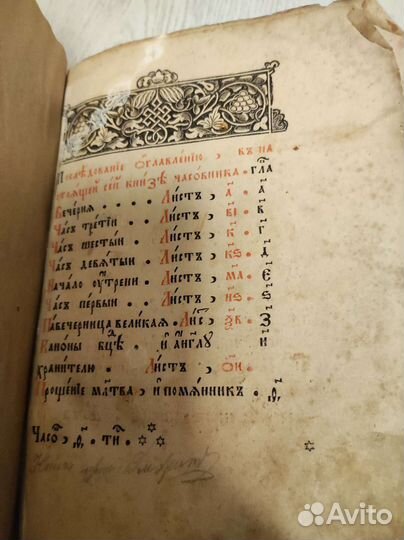 Послѣдованїе ѻглавленїю, въ на
стоѧщей сей кни́зѣ часо́вника. глⷶ
Вече́рнѧ . . . . Ли́стъ, а҃. а҃
Ча́съ тре́тїи . . Ли́стъ, в҃і. в҃
Ча́съ шесты́и . . Ли́стъ, к҃. г҃
Ча́съ девѧ́тыи . . Ли́стъ, к҃ѕ. д҃
Нача́ло ᲂу҆́трени . Ли́стъ, м҃а. є҃
Ча́съ пе́рвыи . . Ли́стъ, н҃ѕ. ѕ҃
Павече́рница вели́каѧ. Ли́с, ѯ҃в. з҃
Кано́ны бцⷣѣ и҆ а҆́нг҃лу и҃
храни́телю . Ли́стъ, о҃и.
Проше́нїе мл҃тва, и҆ помѧ́нникъ.
Avito